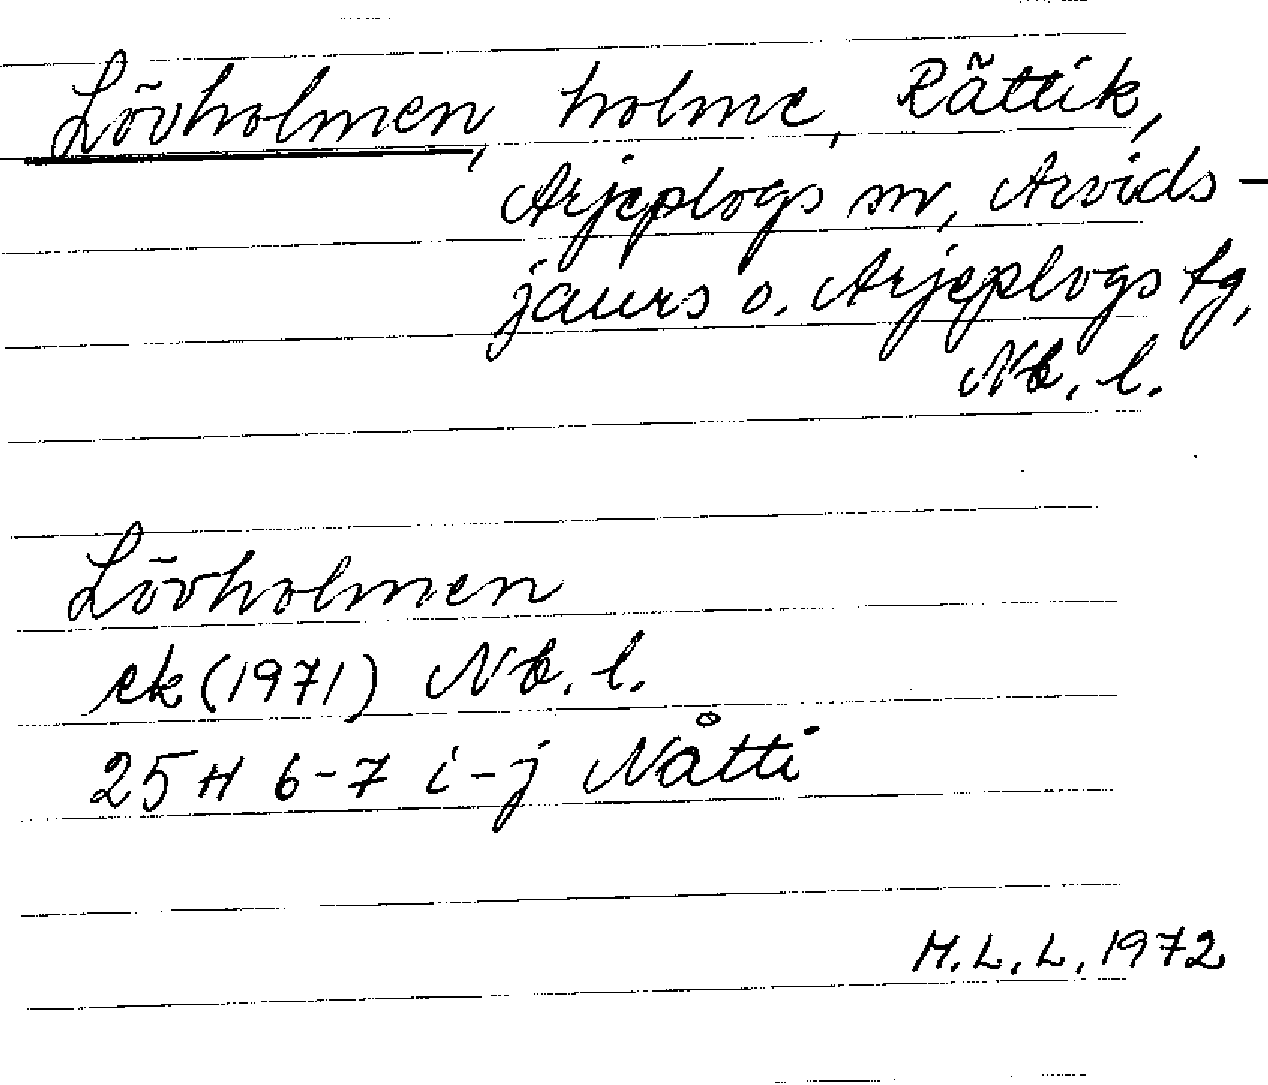 Lövholmen, holme, Rättik,
Arjeplogs sn, Arvids-
jaurs o. Arjeplogs tg,
Nb. l.
Lövholmen
ek (1971) Nb. l.
25H 6-7 i-j Nåtti
M.L.L. 1972